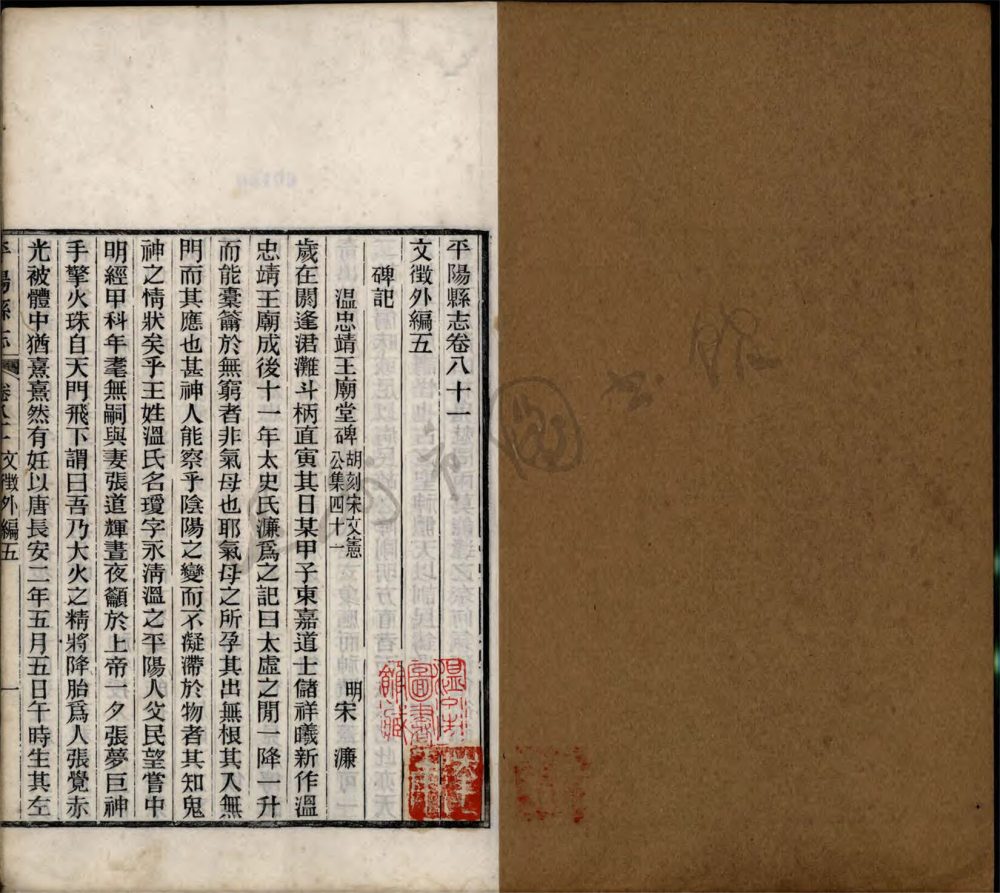 平陽縣志卷八十一
文徵外編五
碑記
温忠靖王廟堂碑 胡刻宋文憲公集四十一 明宋 濂
歲在閼逢涒灘斗柄直寅其日某甲子東嘉道士儲祥曦新作溫
忠靖王廟成後十一年太史氏濂爲之記曰太虛之閒一降一升
而能橐籥於無窮者非氣母也耶氣母之所孕其出無根其入無
門而其應也甚神人能察乎陰陽之變而不凝滯於物者其知鬼
神之情狀矣乎王姓溫氏名瓊字永淸溫之平陽人父民望嘗中
明經甲科年耄無嗣與妻張道輝晝夜籲於上帝一夕張夢巨神
手擎火珠自天門飛下謂曰吾乃大火之精將降胎爲人張覺赤
光被體中猶熹熹然有妊以唐長安二年五月五日午時生其左
平陽縣志 卷八十一 文徵外編五 一
溫州
圖書
館藏